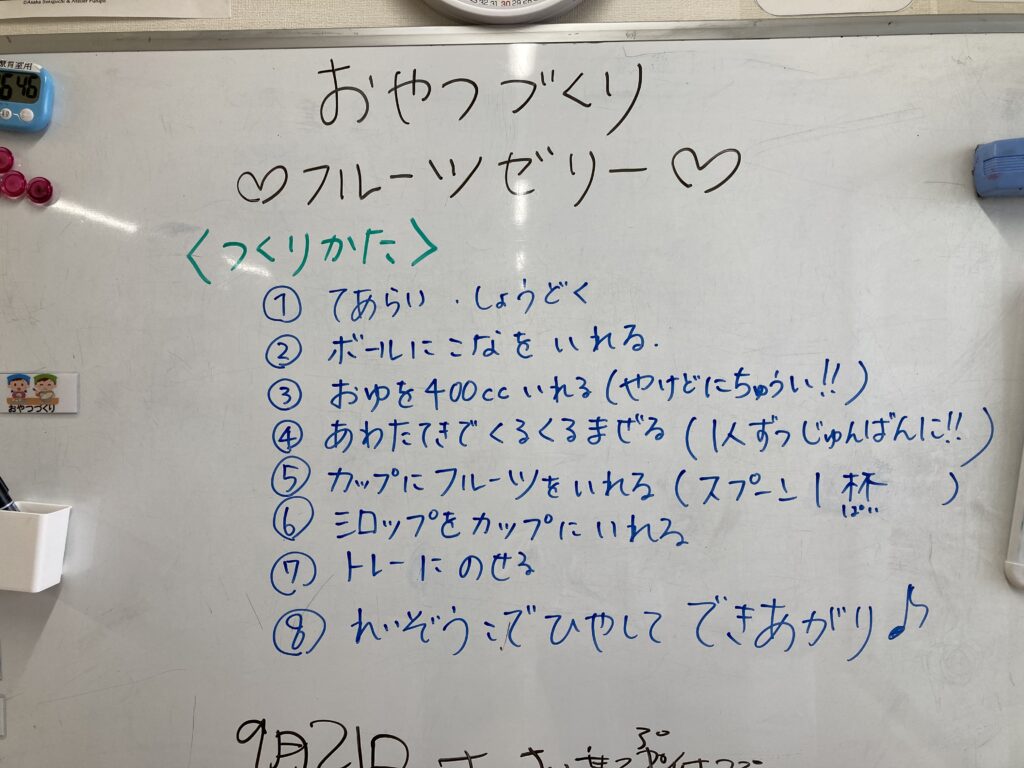 おやつづくり
♡フルーツゼリー♡
<つくりかた>
① てあらい・しょうどく
② ボールにこなをいれる.
③ おゆを400ccいれる(やけどにちゅうい!!)
④ あわたてきでくるくるまぜる(1人ずつじゅんばんに!!)
⑤ カップにフルーツをいれる(スプーン1杯)
ぱい
⑥ シロップをカップにいれる
⑦ トレーにのせる
⑧ れいぞうこでひやして できあがり♪
おやつづくり
9月21日